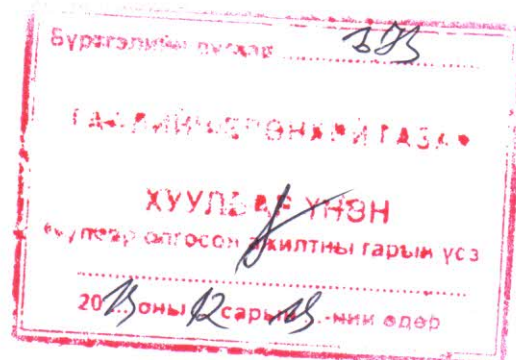 Бүртгэлийн дугаар
ГААЛИЙН ЕРӨНХИЙ ГАЗАР
ХУУЛБАР ҮНЭН
Хуулбар олгосон ажилтны гарын үсэг
20 оны 12 сарын -ний өдөр